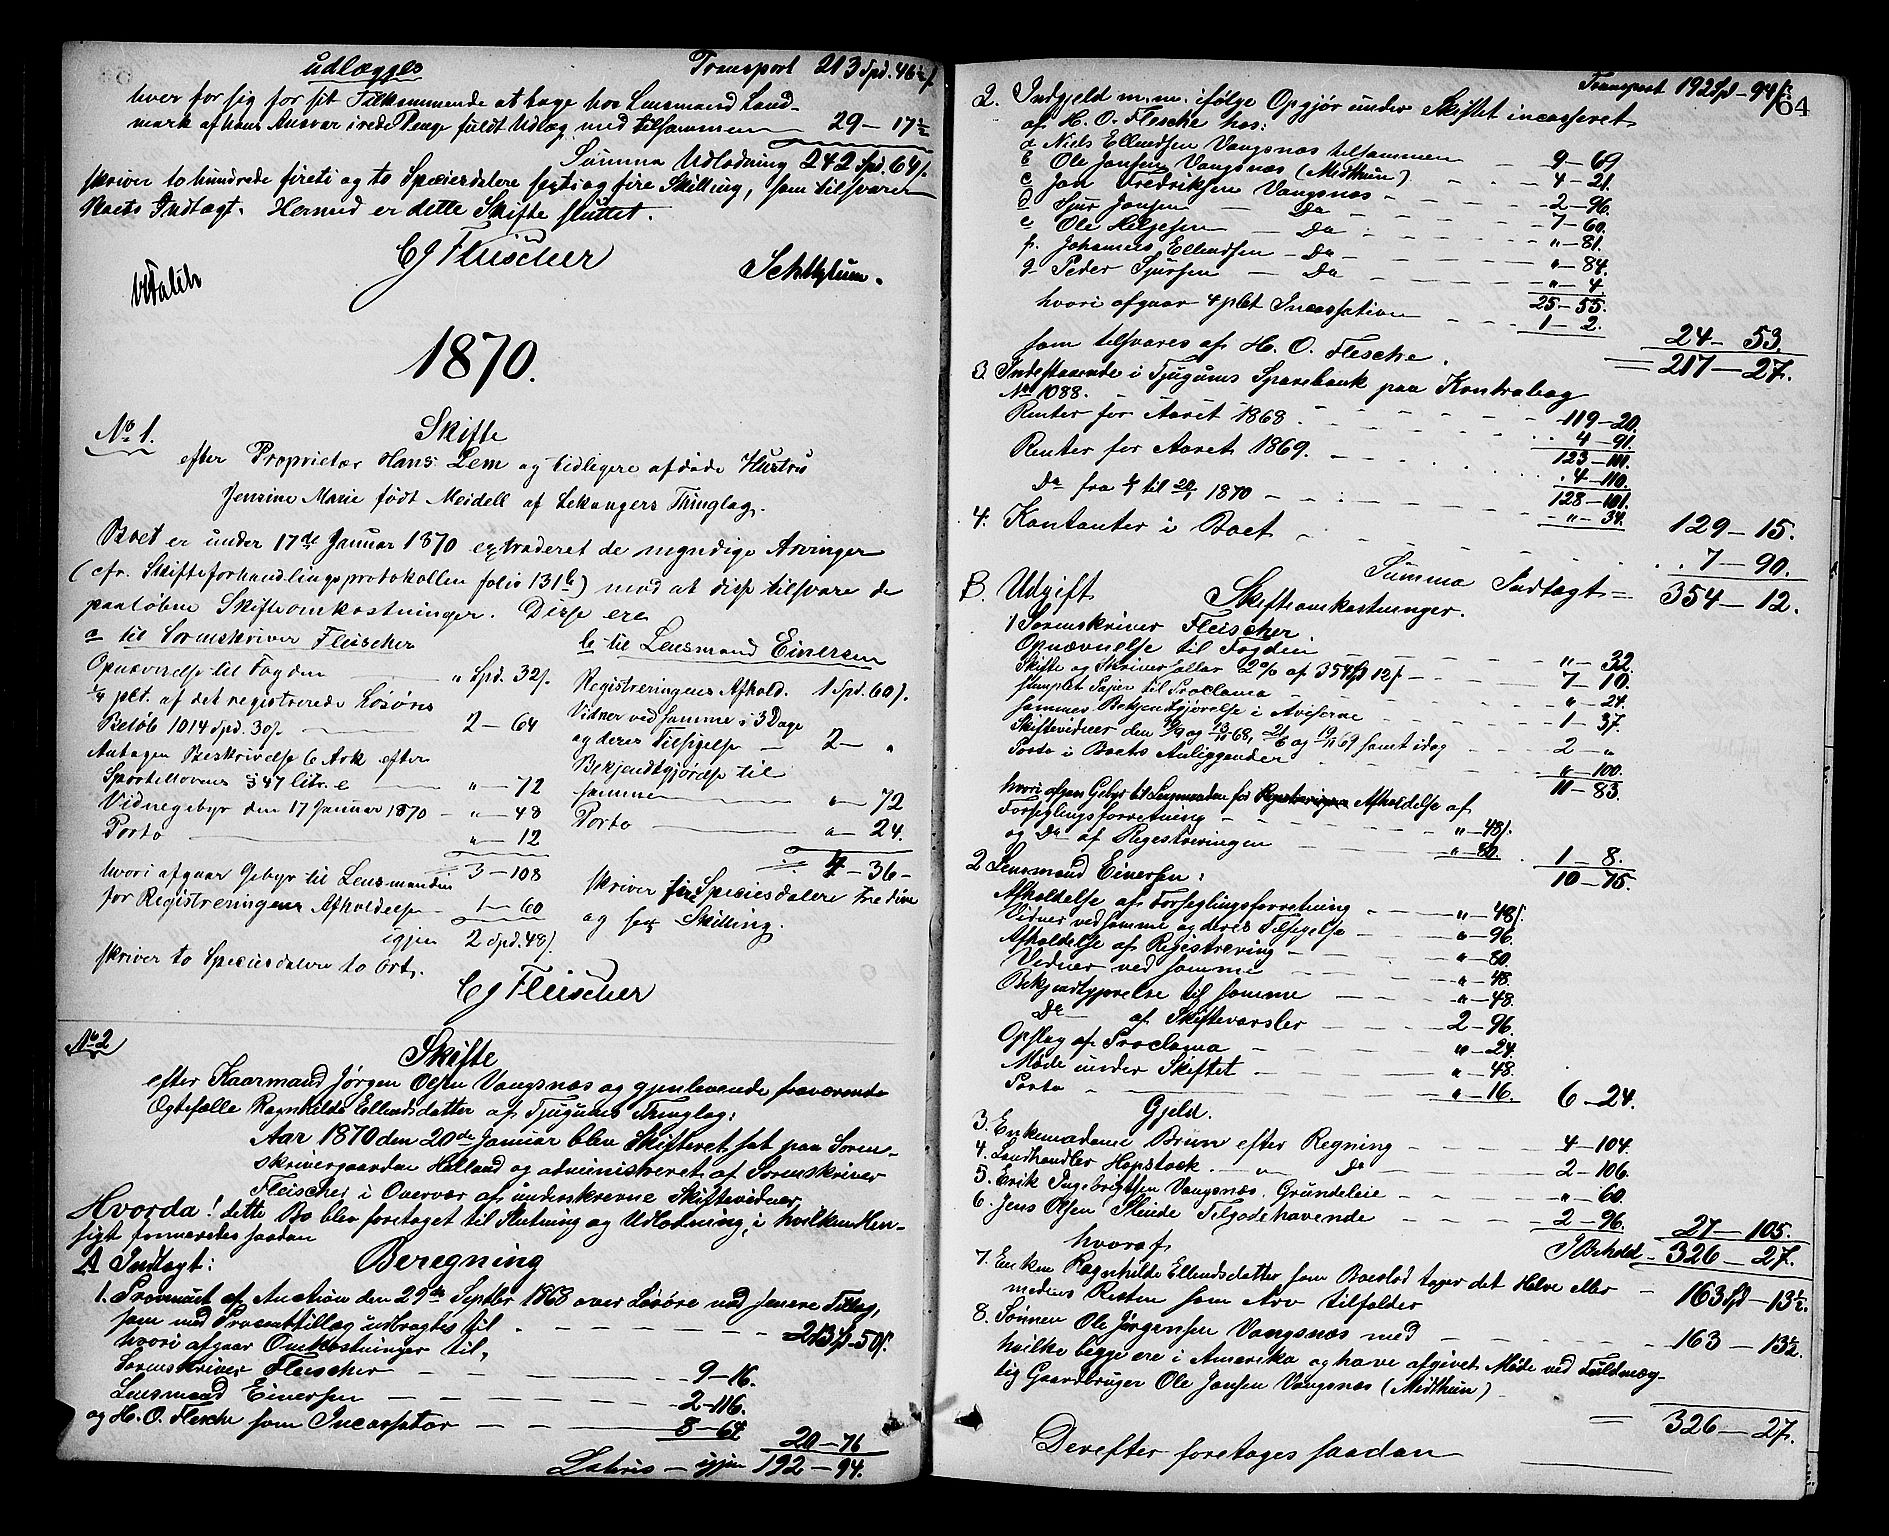 udlægges Transport 213 Spd. 46½ ſ
hver for sig for sit Tilkommende at tage hos Lensmand Land-
mark af hans Ansvar i rede Penge fuldt Udlæg med tilsammen 29 — 17½
Summa Udlodning 242 Spd. 64 ſ
skriver to hundrede firti og to Speciesdalere sexti og fire Skilling, som tilsvarer
Boets Indtægt. Hermed er dette Skifte sluttet.
CJ Fleischer
1870.
No 1. Skifte
efter Proprietær Hans Lem og tidligere afdøde Hustru
Jensine Marie født Meidell af Lekangers Thinglag.
Boet er under 17de Januar 1870 extraderet de myndige Arvinger
(cfr. Skifteforhandlingsprotokollen folio 131b) mod at disse tilsvare de
paaløbne Skifteomkostninger. Disse ere
a til Sorenskriver Fleischer
Opnævnelse til Fogden " Spd. 32 ſ.
¼ pct. af det registrerede Løsøres
Beløb 1014 Spd. 30 ſ. 2 — 64
Antagen Beskrivelse 6 Ark efter
Sportellovens § 47 litr. e " — 72
Vidnegebyr den 17 Januar 1870 " — 48
Porto " — 12
3 — 108
hvori afgaar Gebyr til Lensmanden
for Registreringens Afholdelse 1 — 60
igjen 2 Spd. 48 ſ.
skriver to Speciesdalere to Ort.
b til Lensmand Einersen
Registreringens Afhold. 1 Spd. 60 ſ.
Vidner ved samme i 3 Dage
og deres Tilsigelse 2 — "
Bekjendtgjørelse til
samme " — 72
Porto " — 24.
4 — 36 —
skriver fire Speciesdalere tredive
og sex Skilling.
CJ Fleischer
No 2 Skifte
efter Kaarmand Jørgen Olsen Vangsnæs og gjenlevende fraværende
Egtefælle Ragnhilde Ellendsdatter af Tjugums Thinglag:
Aar 1870 den 20de Januar blev Skifteret sat paa Soren-
skrivergaarden Husland og administreret af Sorenskriver
Fleischer i Overvær af underskrevne Skiftevidner
Hvorda! dette Bo blev foretaget til Slutning og Udlodning, i hvilken Hen-
sigt formeredes saadan
Beregning
A Indtægt:
1. Provenuet af Auction den 29de Septbr 1868 over Løsøre med senere Tillæg,
som med Procenttillæg udbragtes til 213 ſ — 50 ſ.
hvori afgaar Omkostninger til,
Sorenskriver Fleischer 9 — 16.
Lensmand Einersen 2 — 116.
og H. O. Flesche som Incassator 8 — 64
20 — 76
Lateris — igjen 192 — 94.
64
Transport 192 Sp — 94 ſ
2. Indgjeld m.m. ifølge Opgjør under Skiftet incasseret
af H. O. Flesche hos:
a Niels Ellendsen Vangsnæs tilsammen 9 — 69
b Ole Jansen Vangsnæs (Midthun) 4 — 21.
c Jon Fredriksen Vangsnæs 2 — 96.
d Sjur Jansen Do 7 — 60.
e Ole Helgesen — Do " — 81.
f. Johannes Ellendsen — Do " — 84.
g Peder Sjursen — Do " — 4.
25 — 55.
hvori afgaar 4 pCt Incassation 1 — 2.
som tilsvares af H. O. Flesche. 24 — 53.
217 — 27.
3. Indestaaende i Tjugums Sparebank paa Kontrabog
No 1088. 119 — 20.
Renter for Aaret 1868. 4 — 91.
123 — 111.
Renter for Aaret 1869. 4 — 110.
128 — 101.
Do fra 1/1 til 20/1 1870 " — 34. 129 — 15.
4. Kontanter i Boet 7 — 90.
Summa Indtægt = 354 — 12.
B. Udgift Skifteomkostninger.
1 Sorenskriver Fleischer.
Opnævnelse til Fogden " — 32
Skifte og Skriversallar 2 % af 354 Sp 12 ſ 7 — 10.
stemplet Papir til Proclama " — 24.
sammes Bekjendtgjørelse i Aviserne 1 — 37.
2 — "
Porto i Boets Anliggender " — 100.
11 — 83.
hvori afgaar Gebyr til Lensmanden for Afholdelse af
Forseglingsforretning " — 48 ſ.
og Do af Registreringen " — 80. 1 — 8.
10 — 75.
2 Lensmand Einersen:
Afholdelse af Forseglingsforretning " — 48 ſ.
Vidner ved samme og deres Tilsigelse " — 96.
Afholdelse af Registrering " — 80.
Vidner ved samme " — 48
Bekjendtgjørelse til samme " — 48.
Do af Skiftevarsler 2 — 96.
Opslag af Proclama " — 24.
Møde under Skiftet " — 48.
Porto " — 16. 6 — 24.
Gjeld.
3. Enkemadame Brun efter Regning 4 — 104.
4. Landhandler Hopstock " Do 2 — 106.
5. Erik Ingebrigtsen Vangsnæs. Grundeleie " — 60.
6. Jens Olsen Slinde Tilgodehavende 2 — 96. 27 — 105.
hvoraf I Behold 326 — 27.
7. Enken Ragnhilde Ellendsdatter som Boeslod tager det Halve eller 163 Sp — 13½.
medens Resten som Arv tilfalder
8. Sønnen Ole Jørgensen Vangsnæs med 163 — 13½.
hvilke begge ere i Amerika og have afgivet Møde ved Fuldmæg-
tig Gaardbruger Ole Jansen Vangsnæs (Midthun)
= 326 — 27.
Derefter foretages saadan